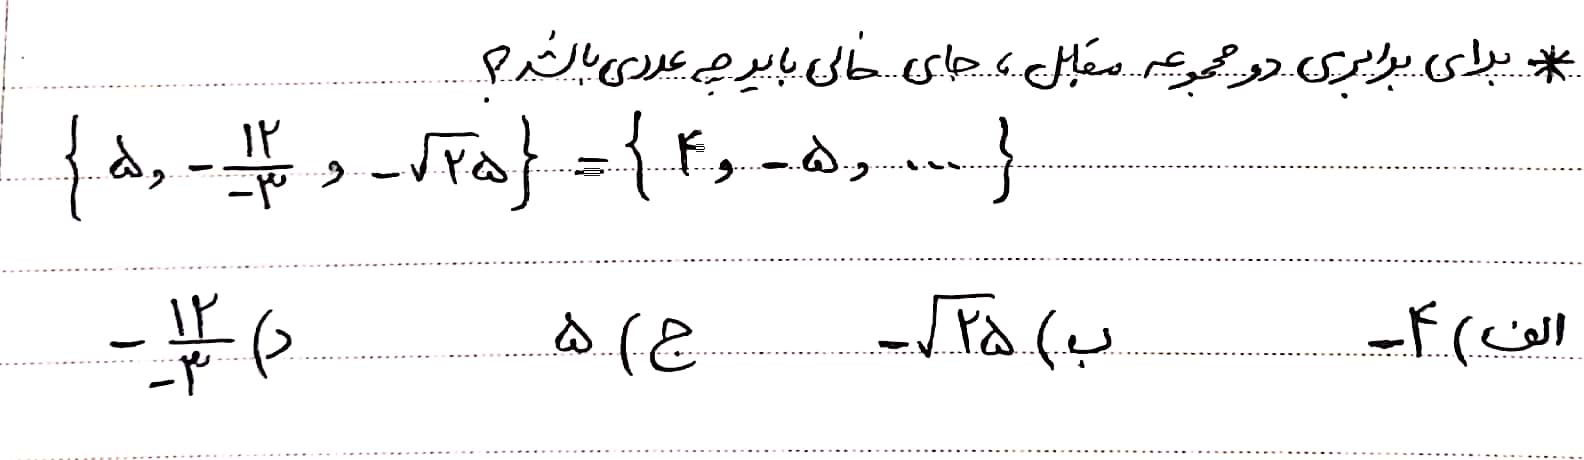 * برای برابری دو مجموعه مقابل، جای خالی باید چه عددی باشد؟
{۵, -۱۲/-۳, -√۲۵} = {۴, -۵, ...}
الف) -۴ ب) -√۲۵ ج) ۵ د) -۱۲/-۳